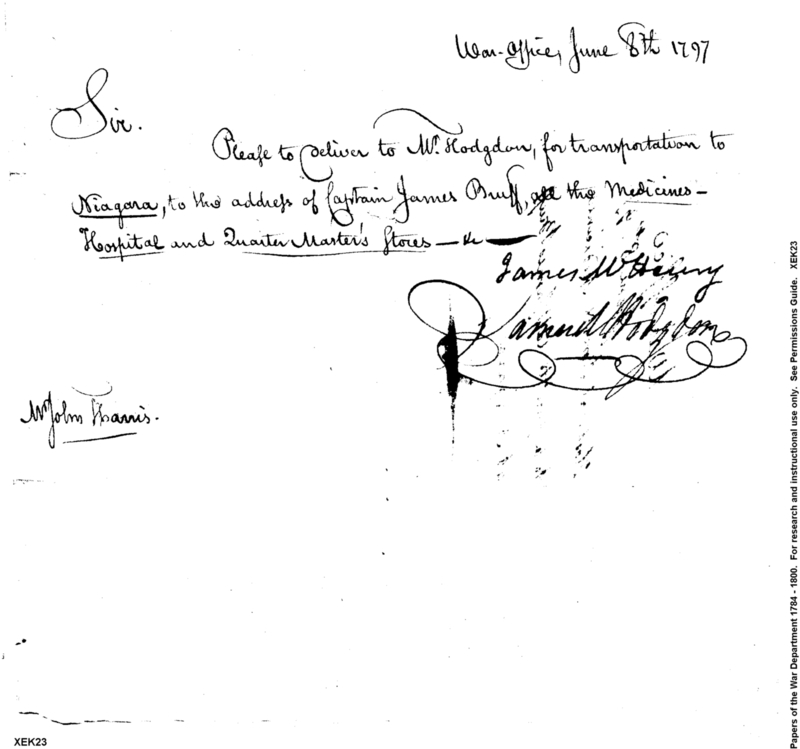 War-Office, June 8th 1797
Sir.
Please to deliver to Mr. Hodgdon, for transportation to
Niagara, to the address of Captain James Bruff, all the Medicines-
Hospital and Quarter Master's Stores - &c -
James McHenry
Samuel Hodgdon
Mr John Harris.
XEK23
Papers of the War Department 1784 - 1800. For research and instructional use only. See Permissions Guide. XEK23